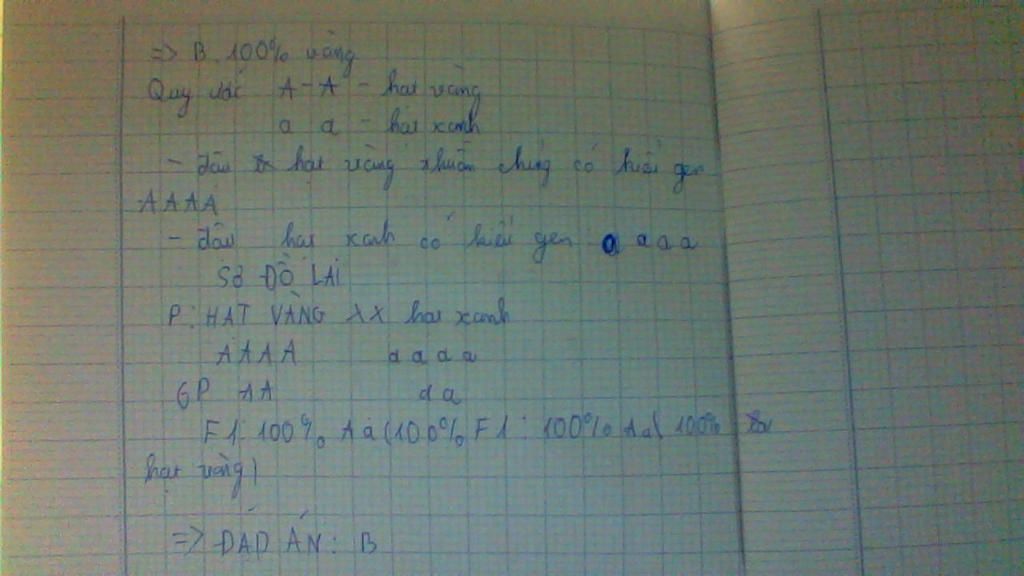 => B. 100% vàng
Quy ước A-A - hạt vàng
a a - hạt xanh
- đậu hạt vàng thuần chủng có kiểu gen
AAAA
- đậu hạt xanh có kiểu gen a a a a
SƠ ĐỒ LAI
P: HẠT VÀNG XX hạt xanh
AAAA a a a a
GP AA a a
F1: 100% Aa (100% F1: 100% Aa( 100%
hạt vàng)
=> ĐÁP ÁN: B